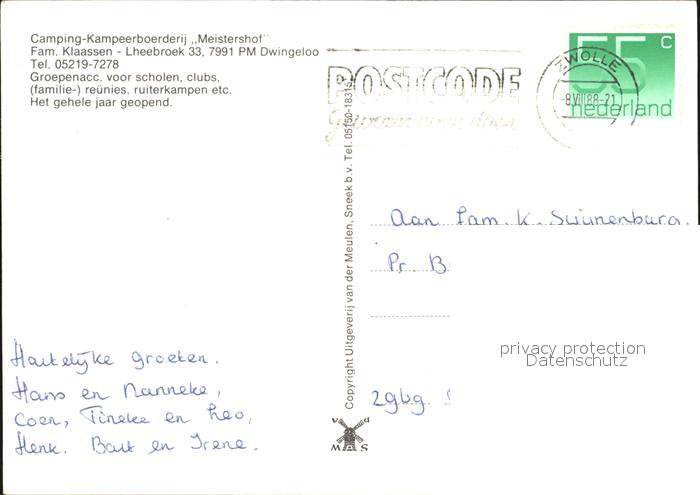 Camping-Kampeerboerderij ,,Meistershof"
Fam. Klaassen - Lheebroek 33, 7991 PM Dwingeloo
Tel. 05219-7278
Groepenacc. voor scholen, clubs,
(familie-) reünies, ruiterkampen etc.
Het gehele jaar geopend.
POSTCODE
gewoon even doen
ZWOLLE
-8.VIII.88-21
55 c
nederland
Copyright Uitgeverij van der Meulen, Sneek b.v. Tel. 05150-18315
Aan Fam. K. Swijnenburg.
Pr. B
privacy protection
Datenschutz
2969
Hartelijke groeten.
Hans en Nanneke,
Coen, Tineke en Leo,
Henk. Bart en Irene.
v d
MAS